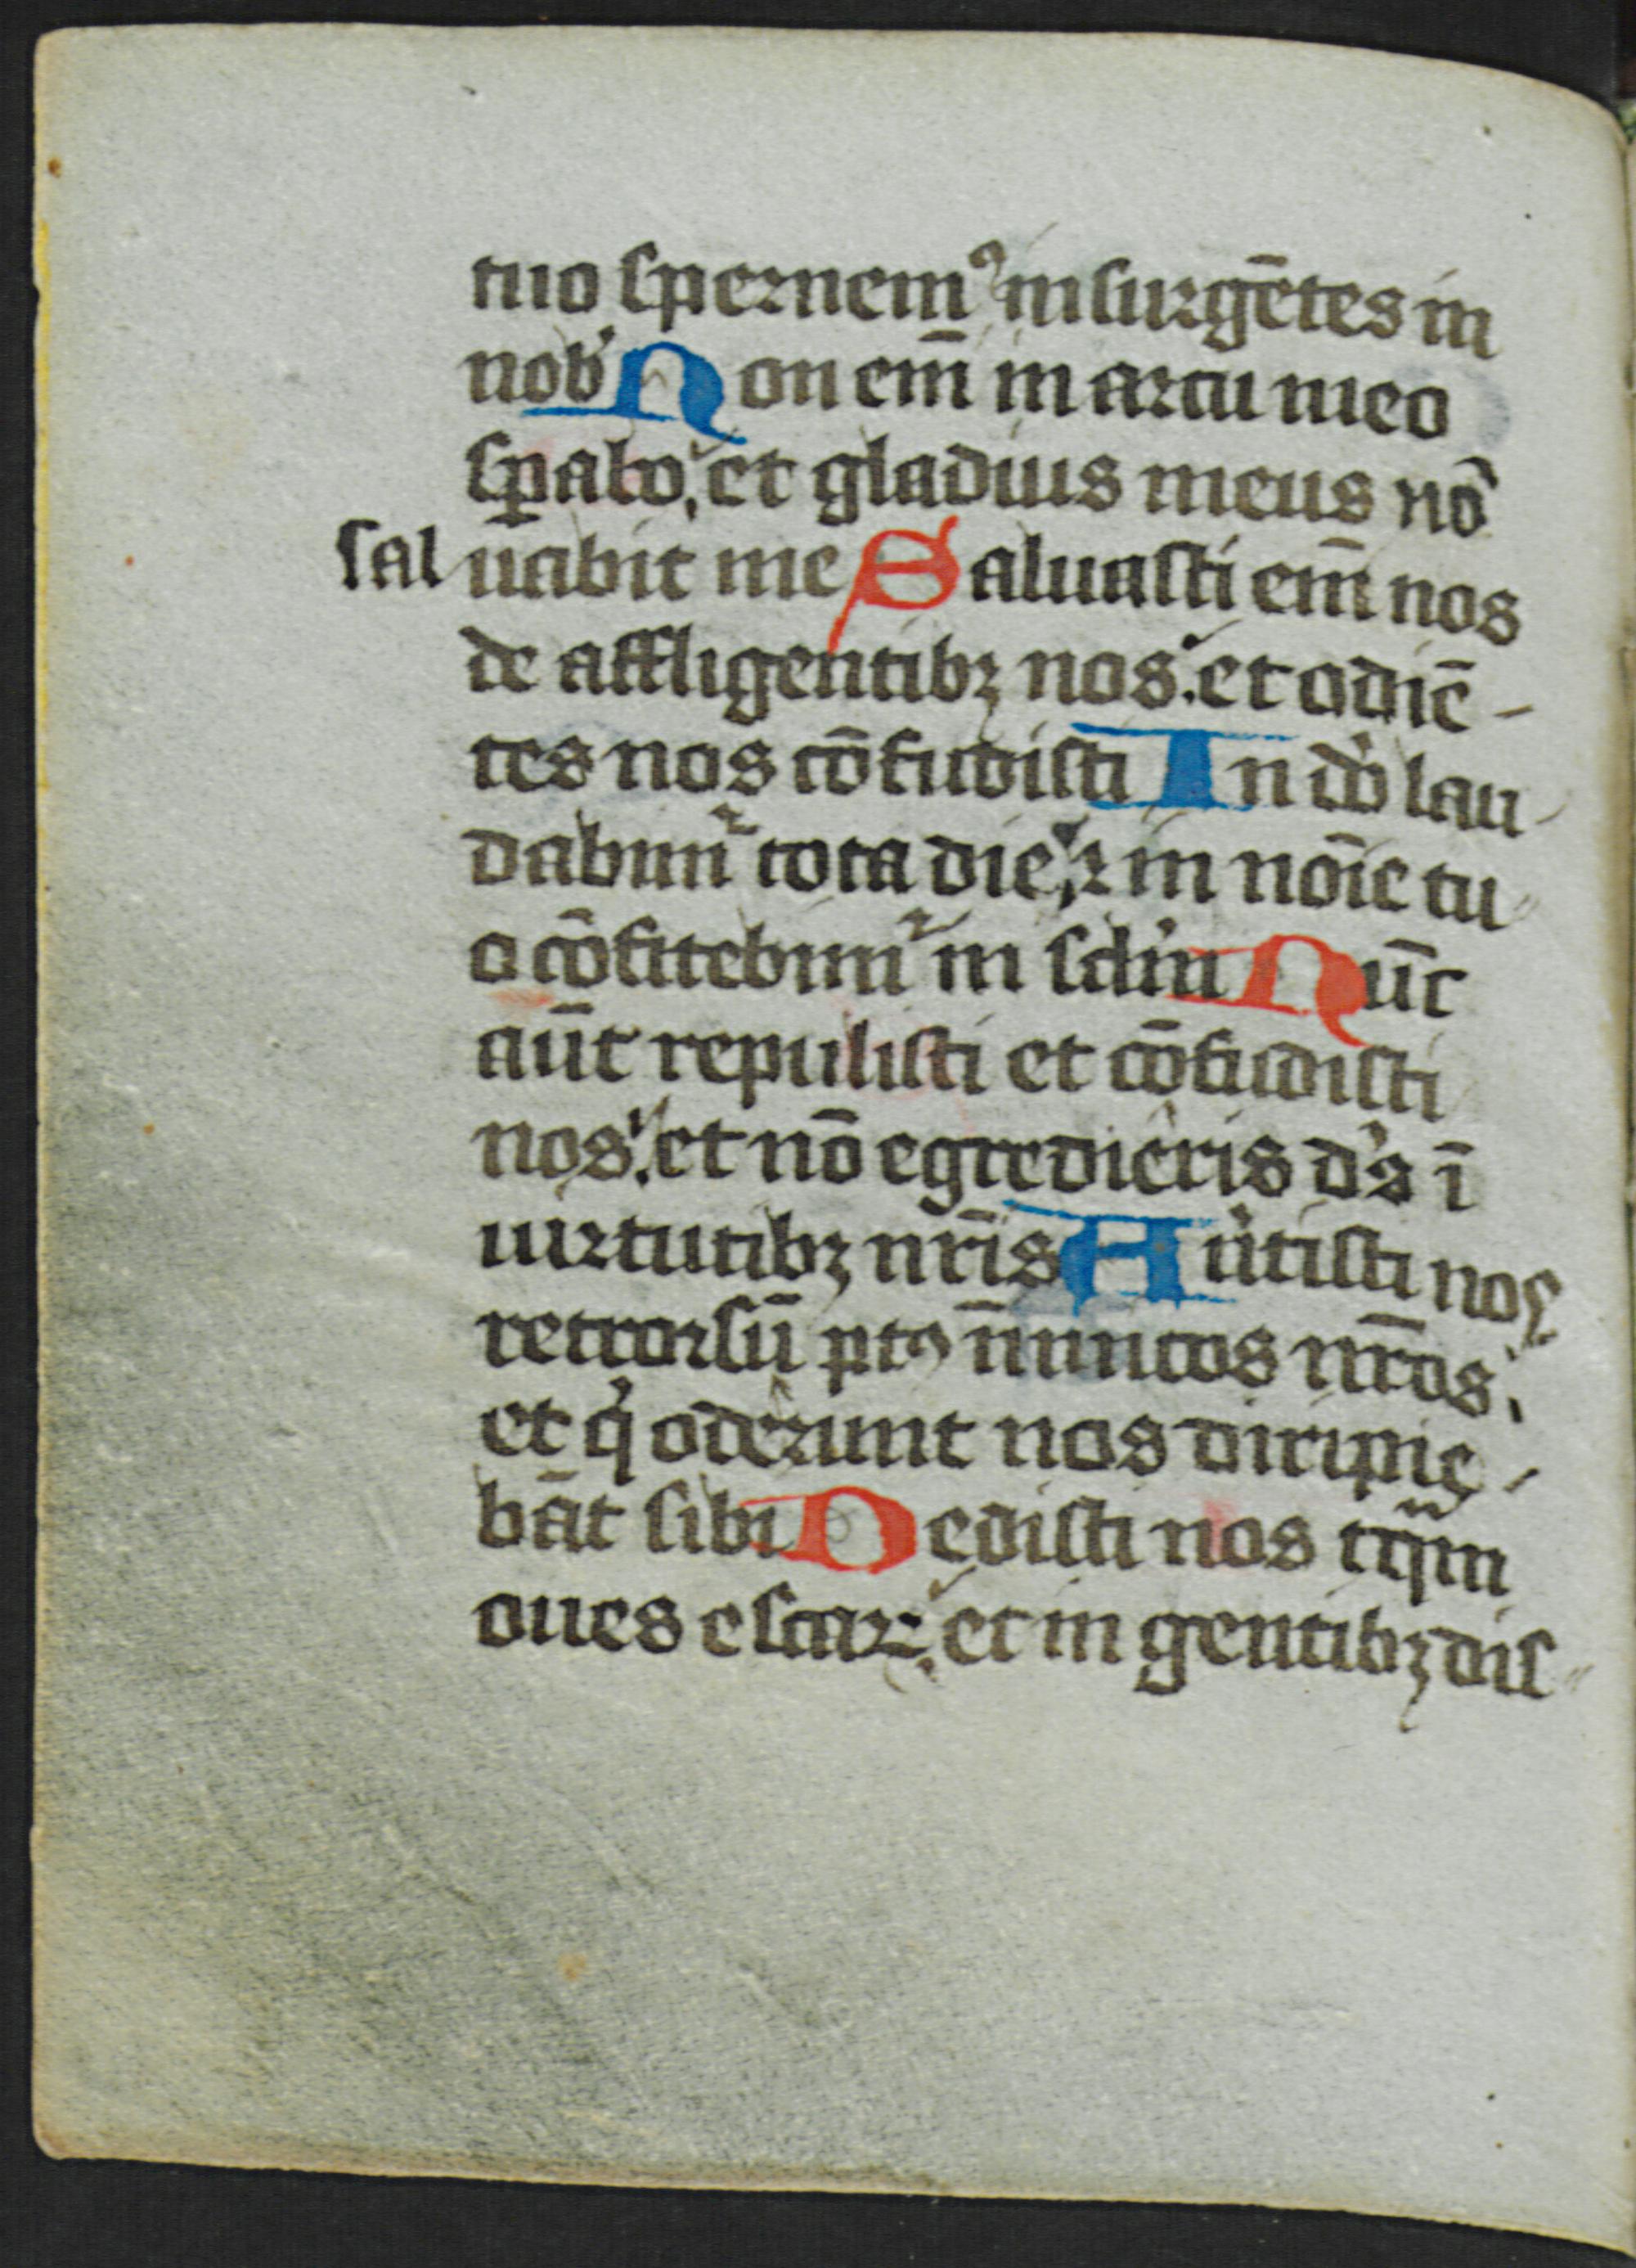 tuo spernemꝰ insurgētes in
nob' Non em̄ in arcu meo
sꝑabo. et gladius meus nō
saluabit me Saluasti em̄ nos
de affligentibꝫ nos. et odiē-
tes nos cōfudisti In do' lau-
dabimur tota die. ⁊ in noīe tu-
o cōfitebimur in sclm Nūc
aūt repulisti et cōfudisti
nos. et nō egredieris d's ī
uirtutibꝫ nr̄is Au'tisti nos
retrorsū ptꝯ īimicos nr̄os.
et qi oderunt nos diripie-
bāt sibi Dedisti nos tq̄m
oues escarꝝ. et in gentibꝫ dis-